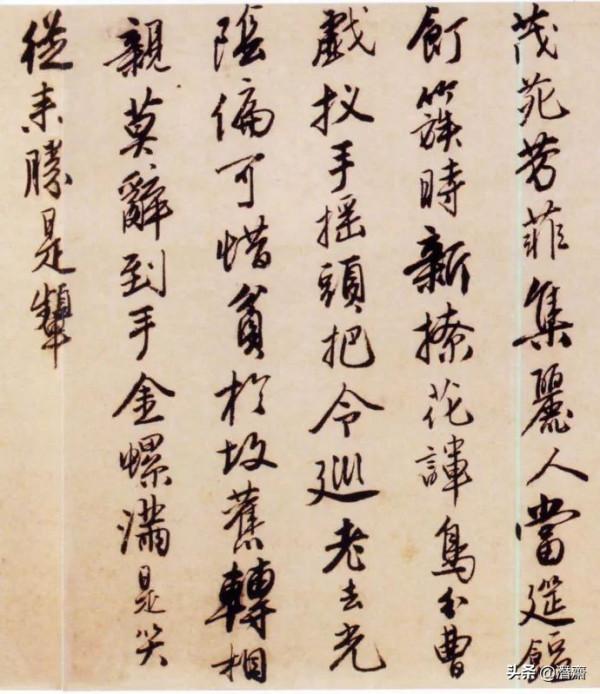 茂苑芳菲集麗人當筵餖
飣簇時新撩花諢鳥分曹
戲扠手摇頭把令廵老去光
陰偏可惜貧於故舊轉相
親莫辭到手金螺滿是笑
從來勝是顰
头条 @潛齋